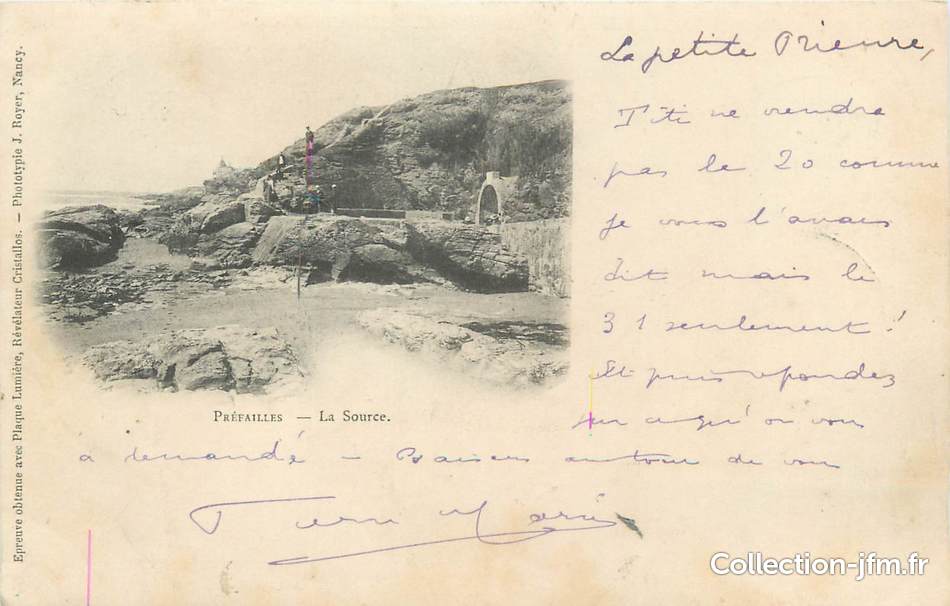 Epreuve obtenue avec Plaque Lumière, Révélateur Cristallos. — Phototypie J. Royer, Nancy.
La petite Prieure,
Titi ne viendra
pas le 20 comme
je vous l'avais
dit mais le
31 seulement!
Et puis répondez
sur ce qu'on vous
a demandé — Baisers autour de vous
Marie
PRÉFAILLES — La Source.
Collection-jfm.fr